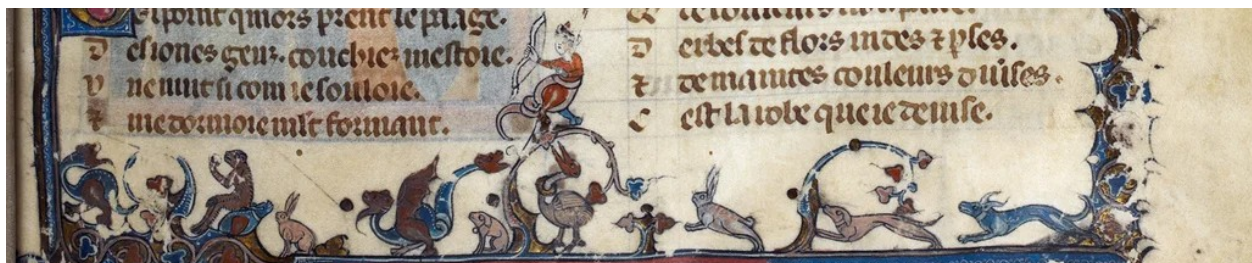 El point qmors prent le paage.
D es iones genz. couchier mestoie.
V ne nuit si com ie souloie.
⁊ me dormoie mlt formant.
D erbes de flors indes ⁊ pses.
⁊ de maintes couleurs diuises.
C est la robe que ie deuise.